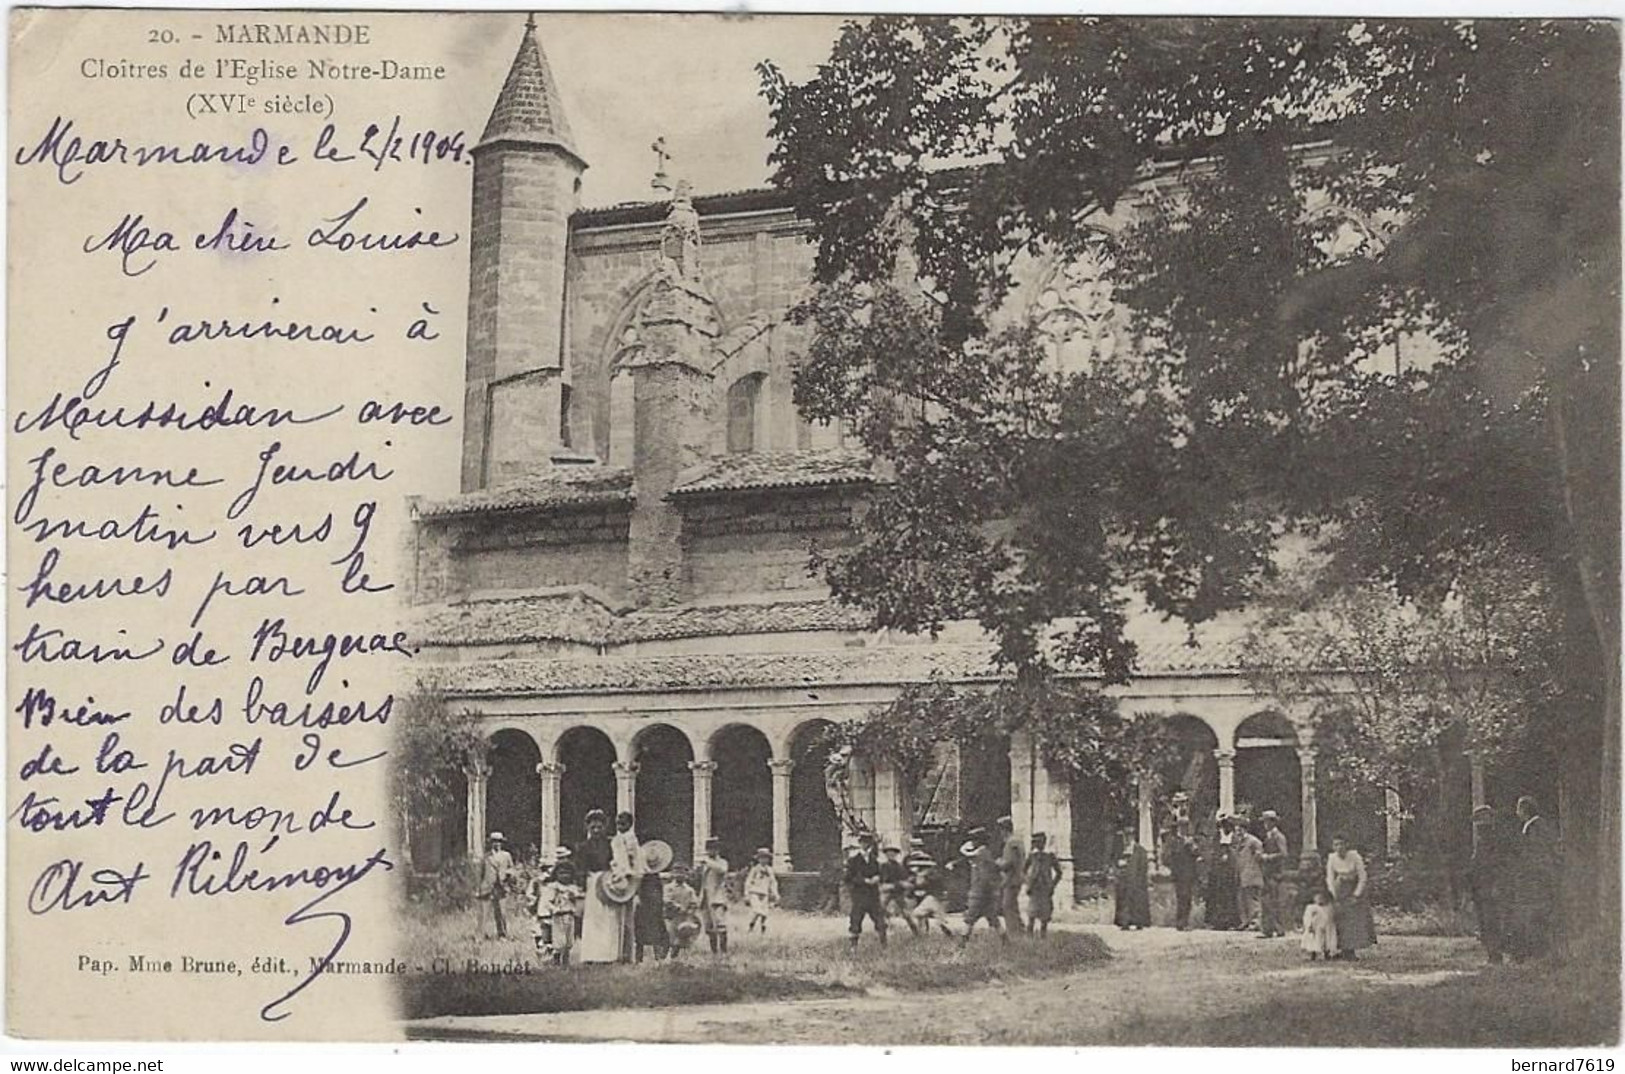 20. - MARMANDE
Cloîtres de l'Eglise Notre-Dame
(XVIe siècle)
Marmande le 2/2 1904.
Ma chère Louise
J'arriverai à
Mussidan avec
Jeanne Jeudi
matin vers 9
heures par le
train de Bergerac.
Bien des baisers
de la part de
tout le monde
Ant Ribémont
Pap. Mme Brune, édit., Marmande - Cl. Boudet
bernard7619